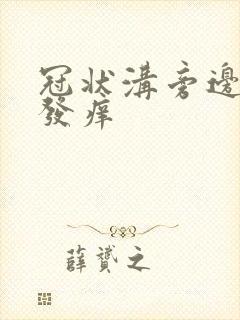 冠状溝旁邊
發痒
薛贇之